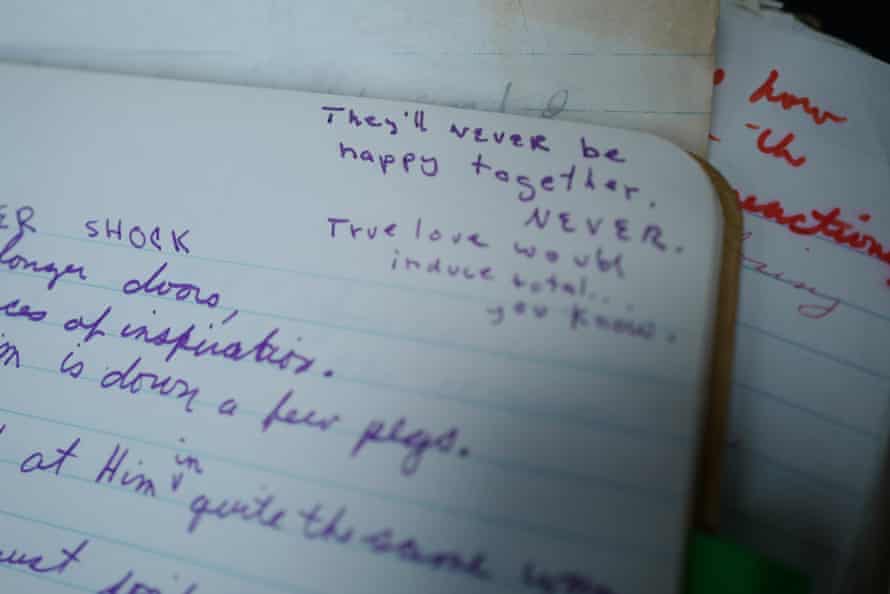 They'll NEVER be
happy together.
NEVER.
True love would
induce total...
you know.
ER SHOCK
longer doors,
ces of inspiration.
is down a few pegs.
at Him in quite the same
how
the
reaction